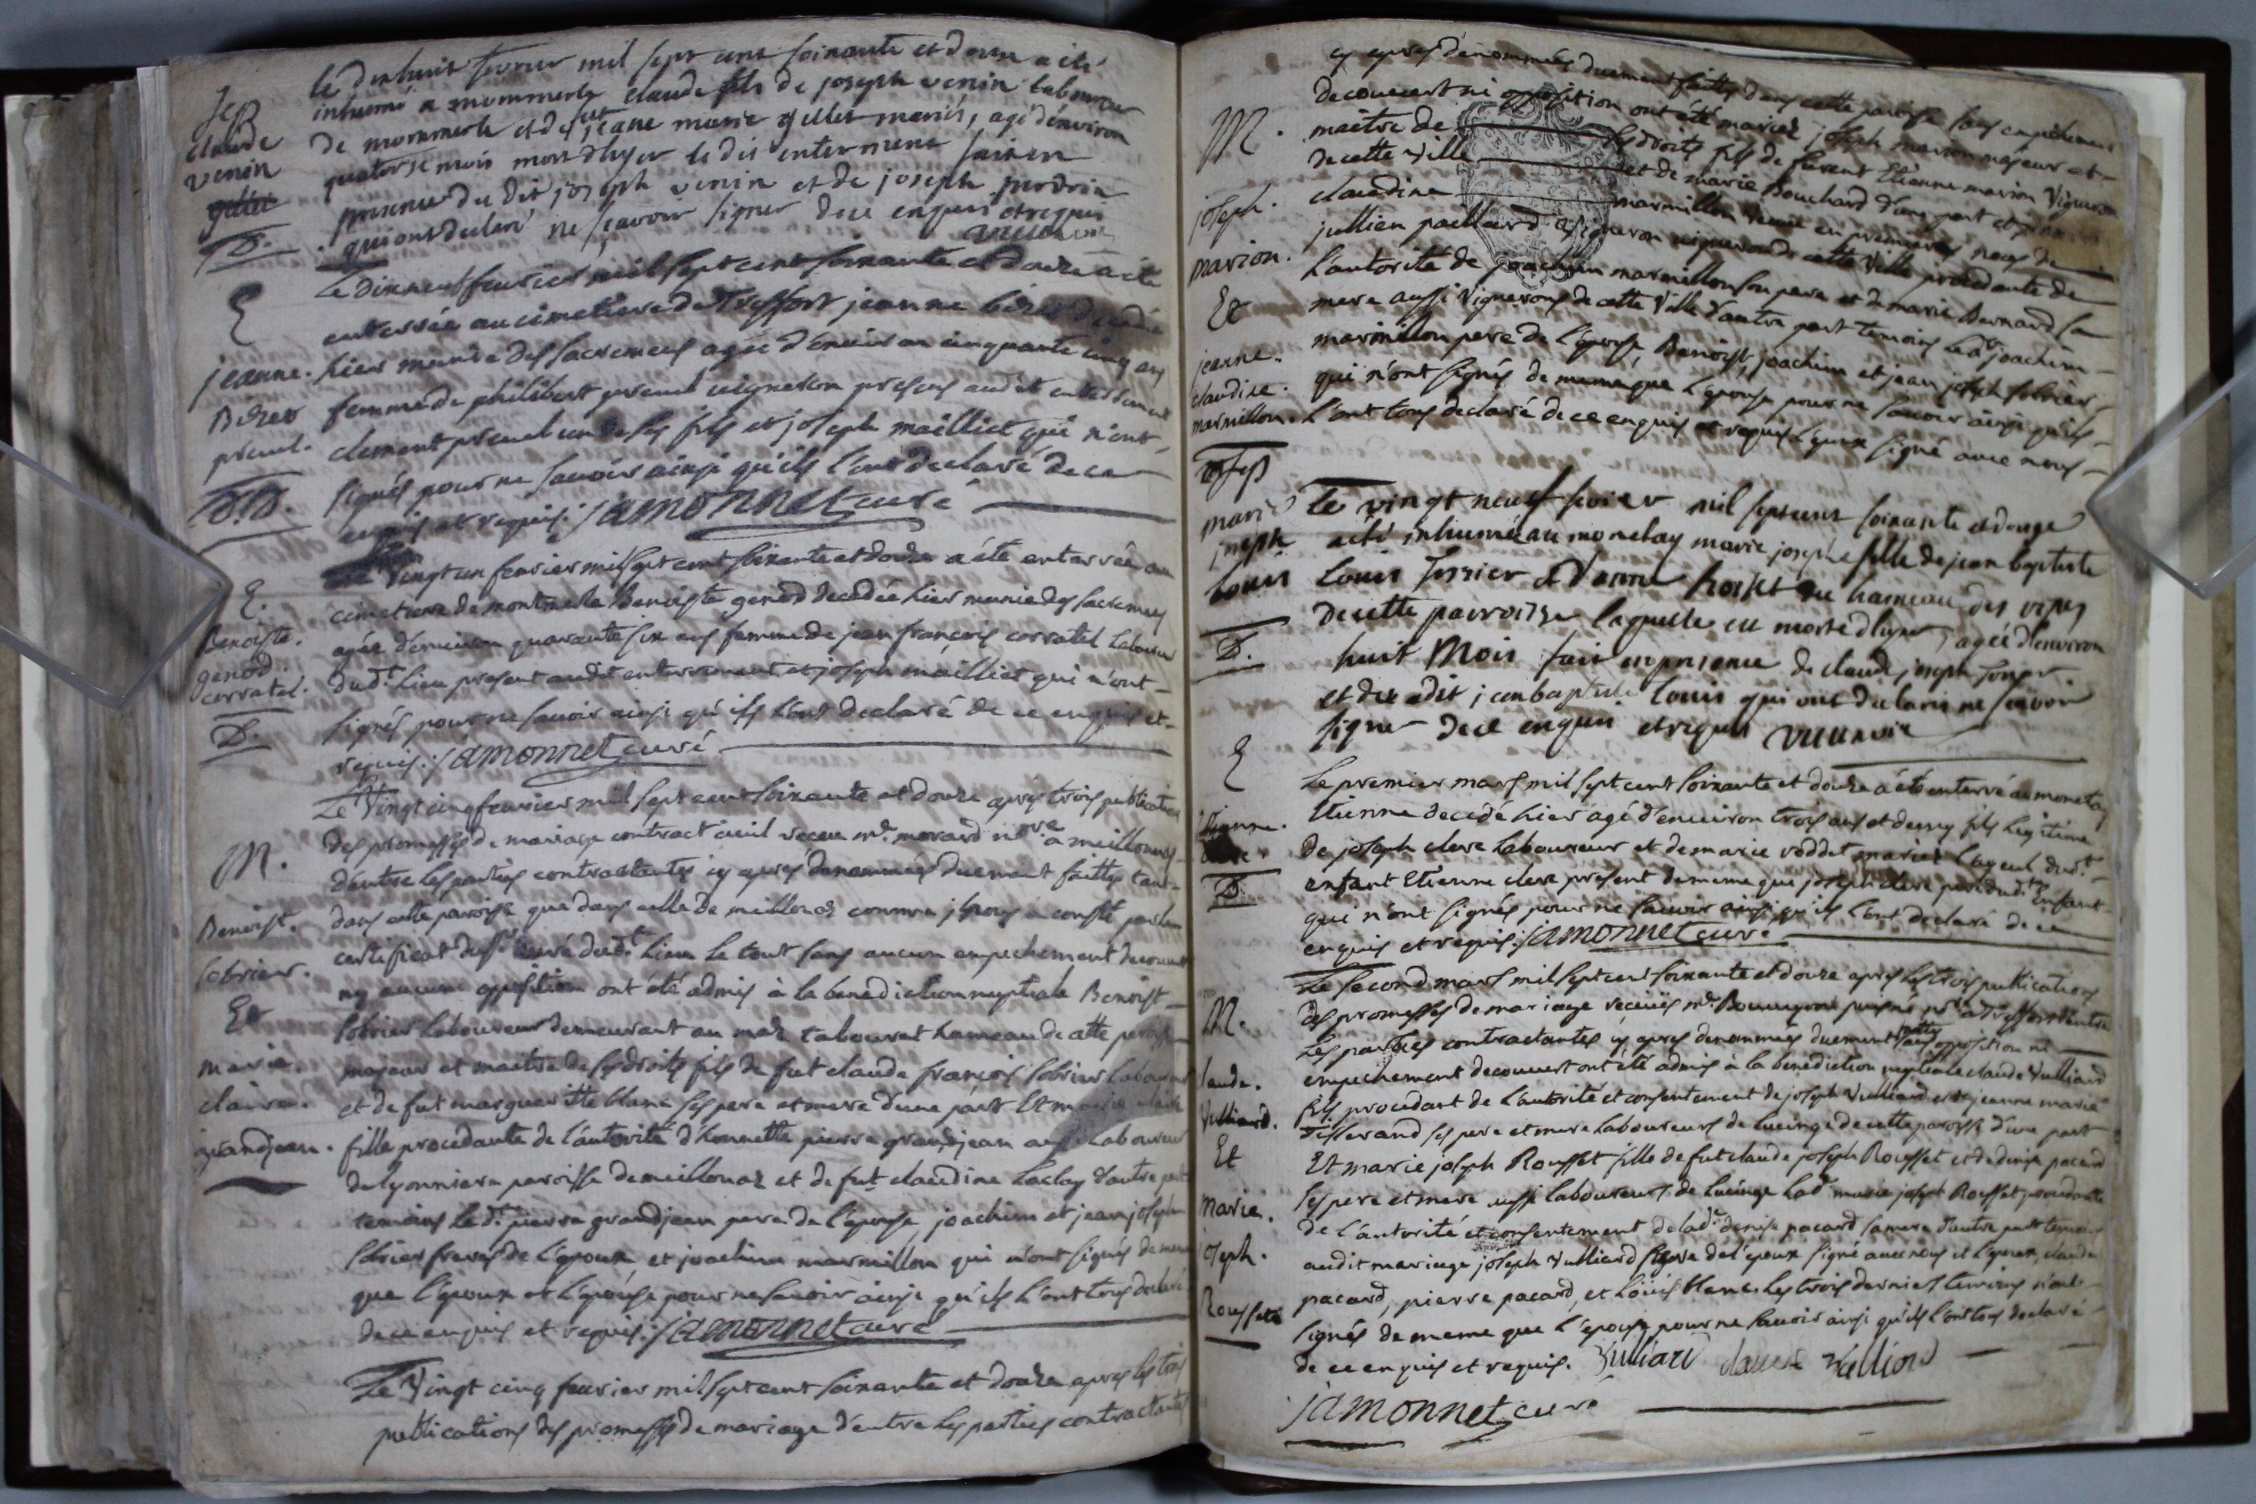 le dix huit fevrier mil sept cent soixante et douze a été
inhumé a mommerle claude fils de joseph venin laboureur
de mommerle et de jeane marie gillet mariés, agé denviron
quatorse mois mort dhyer le dit enterment fait en
presence du dit joseph venin et de joseph perdrix
qui ont declaré ne sçavoir signer de ce enquis et requis
claude
venin
gillet
D.
Le dix neuf fevrier mil sept cent soixante et douze a été
enterrée au cimetiere de Treffort jeanne decedée
hier munie des sacremens agée d'environ cinquante cinq ans
femme de philibert vigneron presens audit enterrement
clement un de ses fils et joseph mailliet qui n'ont
signés pour ne savoir ainsi qu'ils l'ont declaré de ce
enquis et requis. jamonnet curé
E
jeanne.
Le vingt un fevrier mil sept cent soixante et douze a été enterrée au
cimetiere de montmerle Benoiste genod decedée hier munie des sacremens
agée d'environ quarante six ans femme de jean françois corratel laboureur
dud.t lieu present audit enterrement et joseph mailliet qui n'ont
signés pour ne savoir ainsi qu'ils l'ont declaré de ce enquis et
requis. jamonnet curé
E.
Benoiste.
genod
corratel.
D.
Le Vingt cinq fevrier mil sept cent soixante et douze apres trois publications
des promesses de mariage contract civil receu m.e morard n.re a meillonas
d'entre les parties contractantes cy apres denommées duement faittes tant
dans cette paroisse que dans celle de meillonas comme il nous a consté par le
certificat du s.r curé dud.t lieu le tout sans aucun empechement decouvert
ny aucune opposition ont été admis à la benediction nuptiale Benoist
sobrier laboureur demeurant au mas tabouret hameau de cette paroisse
majeur et maitre de ses droits fils de fut claude françois sobrier laboureur
et de fut margueritte blanc ses pere et mere d'une part Et marie claire
fille procedante de l'autorité d'honnette pierre grandjean aussi laboureur
de lyonniere paroisse de meillonaz et de fut claudine laclay d'autre part
temoins le d.t pierre grandjean pere de l'epouse, joachim et jean joseph
sobrier freres de l'epoux et joachim marmillon qui n'ont signés de meme
que l'epoux et l'epouse pour ne savoir ainsi qu'ils l'ont tous declaré
de ce enquis et requis. jamonnet curé
M.
Benoist.
sobrier.
Et
marie.
claire.
grandjean.
Le Vingt cinq fevrier mil sept cent soixante et douze apres les trois
publications des promesses de mariage d'entre les parties contractantes
cy apres dénommées duement faittes dans cette paroisse sans empechement
decouvert ni opposition ont été mariés joseph marion majeur et
maitre de ses droits fils de fut Etienne marion Vigneron
de cette ville et de marie Bouchard d'une part et jeanne
claudine marmillon veuve en premieres noces de
jullien paillard vigneron de cette Ville procedante de
l'autorité de joachim marmillon son pere et de marie Bernard sa
mere aussi vignerons de cette Ville d'autre part temoins le d.t joachim
marmillon pere de l'epouse, Benoist, joachim et jean joseph sobrier
qui n'ont signés de meme que l'epouse pour ne savoir ainsi qu'ils
l'ont tous declaré de ce enquis et requis l'epoux signé avec nous
M.
joseph.
marion.
Et
jeanne.
claudine.
marmillon.
le vingt neuf fevrier mil sept cent soixante et douze
a été inhumé au monetay marie josephe fille de jean baptiste
Louis et d'anne du hameau des
de cette parroisse laquelle est morte dhyer, agée d'environ
huit Mois fait en presence de claude joseph
et du dit jean baptiste Louis qui ont declarés ne sçavoir
signer de ce enquis et requis
marie
joseph
Louis
D.
Le premier mars mil sept cent soixante et douze a été enterré au monetay
Etienne decedé hier agé d'environ trois ans et demy fils legitime
de joseph clere laboureur et de marie roddet mariés l'ayeul dud.t
enfant Etienne clere present de meme que joseph clere pere dud.t enfant
qui n'ont signés pour ne savoir ainsi qu'ils l'ont declaré de ce
enquis et requis. jamonnet curé
E
Etienne.
clere.
D.
Le second mars mil sept cent soixante et douze apres les trois publications
des promesses de mariage receües m.e n.re a Treffort d'entre
les parties contractantes cy apres denommées duement faittes sans opposition ni
empechement decouvert ont été admis à la benediction nuptiale claude Vulliard
fils procedant de l'autorité et consentement de joseph Vulliard et de jeanne marie
Tisserand ses pere et mere laboureurs de Lucinge de cette paroisse d'une part
Et marie joseph Rousset fille de fut claude joseph Rousset et de denise pacard
ses pere et mere aussi laboureurs de Lucinge lad.e marie joseph Rousset procedante
de l'autorité et consentement de lad.e denise pacard sa mere d'autre part temoins
audit mariage joseph Vulliard frere de l'epoux signé avec nous et l'epoux, claude
pacard, pierre pacard, et Loüis blanc. les trois derniers temoins n'ont
signés de meme que l'epouse pour ne savoir ainsi qu'ils l'ont tous declaré
de ce enquis et requis. Vulliard claude Vulliard
jamonnet curé
M.
laude.
Vulliard.
Et
Marie.
oseph.
Rousset